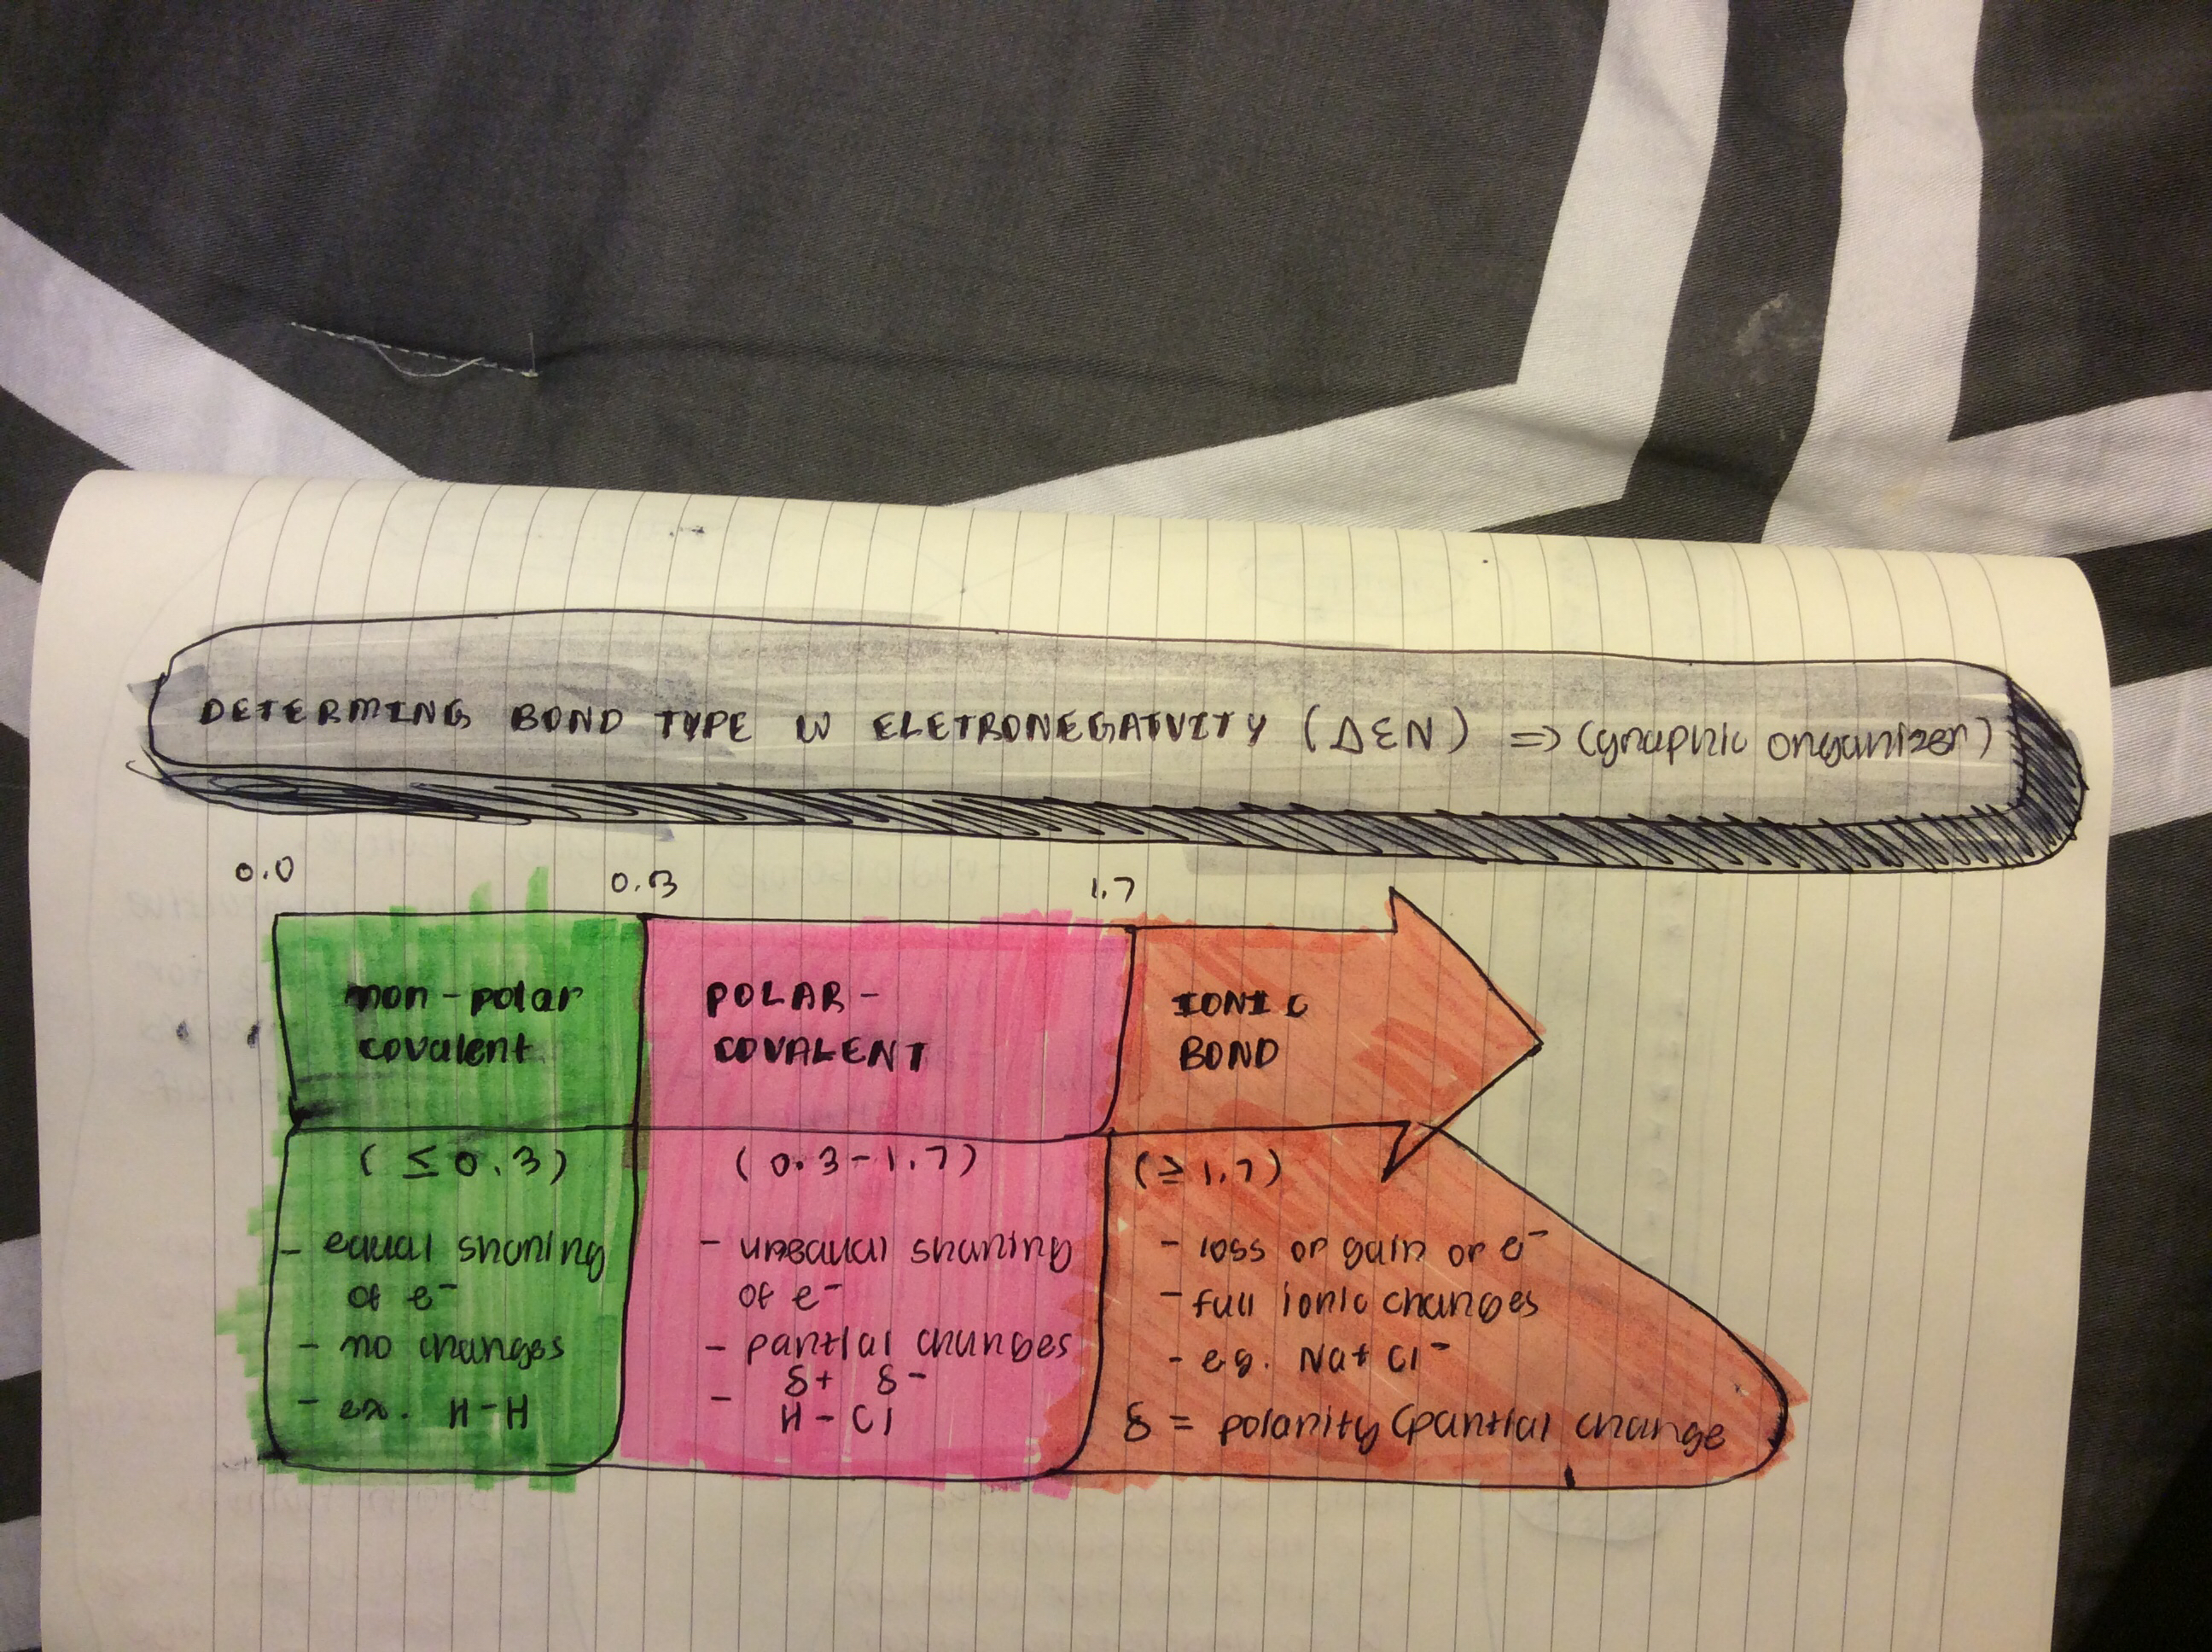 DETERMING BOND TYPE W ELETRONEGATVITY (ΔEN) => (graphic organizer)
0.0 0.3 1.7
non-polar
covalent
(≤ 0.3)
- equal sharing
of e⁻
- no charges
- ex. H-H
POLAR-
COVALENT
(0.3-1.7)
- unequal sharing
of e⁻
- partial charges
- δ+ δ-
H-Cl
IONIC
BOND
(≥ 1.7)
- loss or gain or e⁻
- full ionic charges
- eg. Na+ Cl⁻
δ = polarity (partial charge